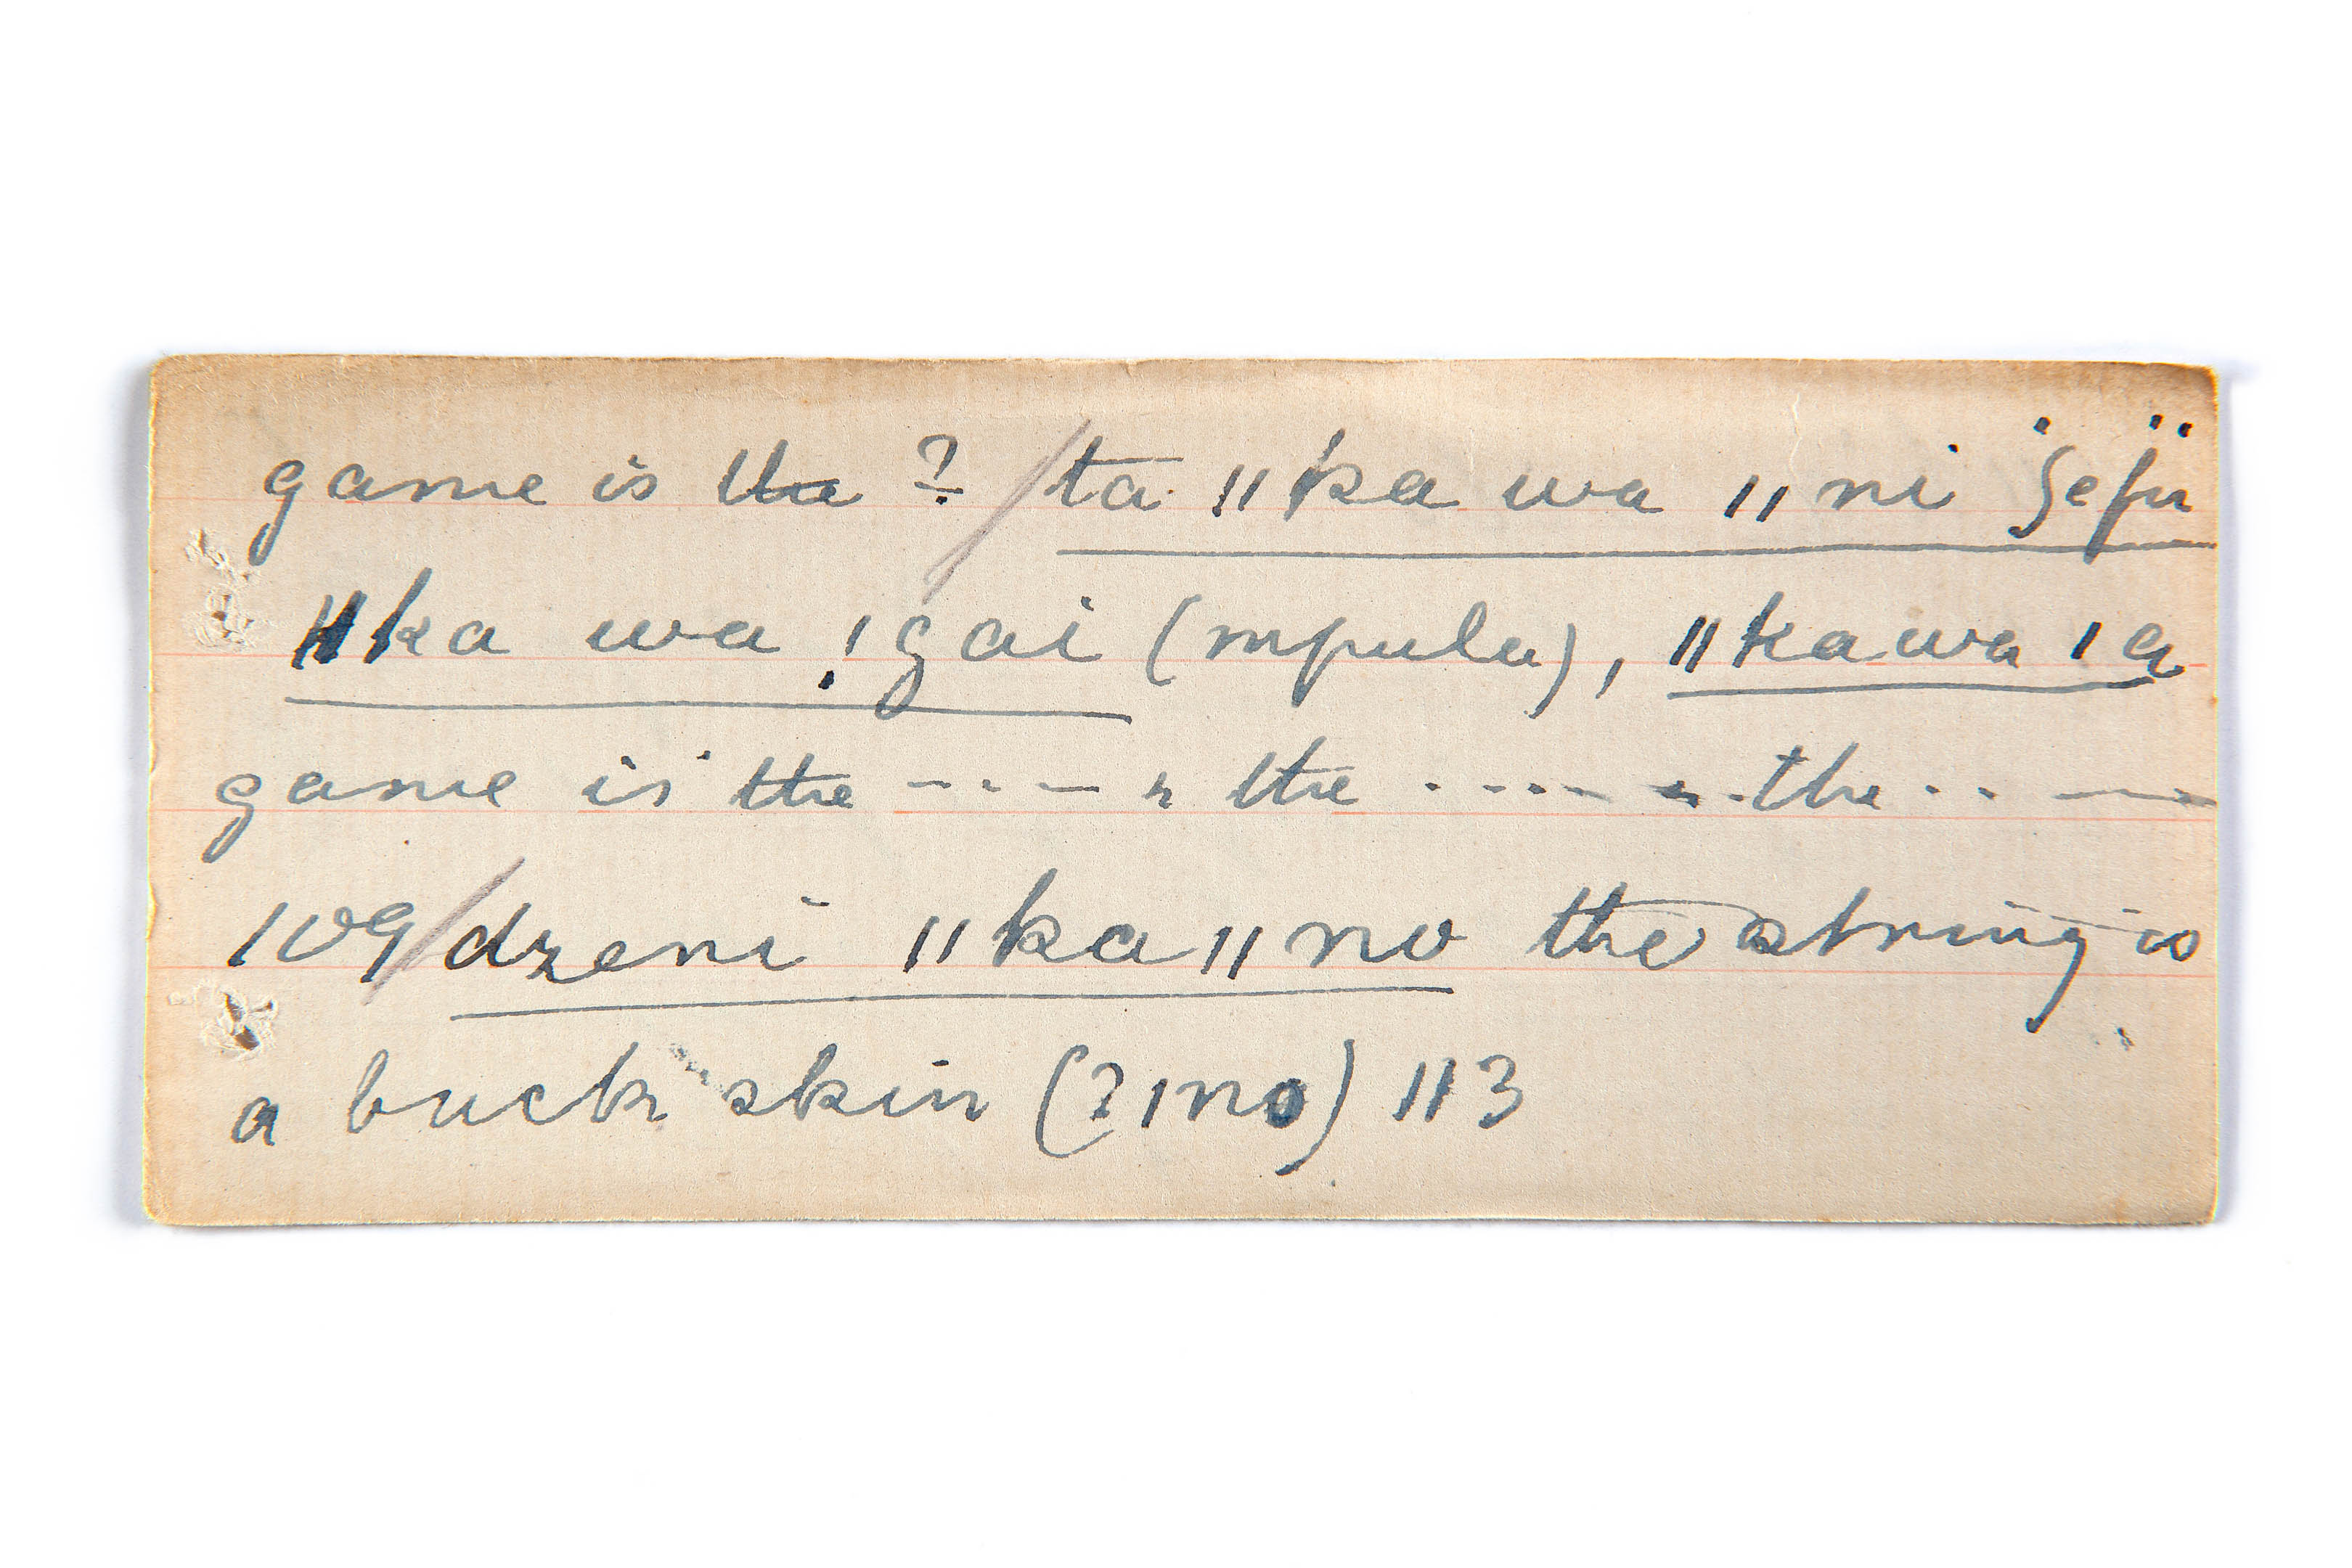 game is the ? / ta ǁka wa ǁni
ǁka wa !gai (mpula), ǁka wa ǀa
game is the - . . - " the . - - - - " . the . . —
109/ dzeni ǁkaǁno the string is
a buck skin (? ǀno) 113